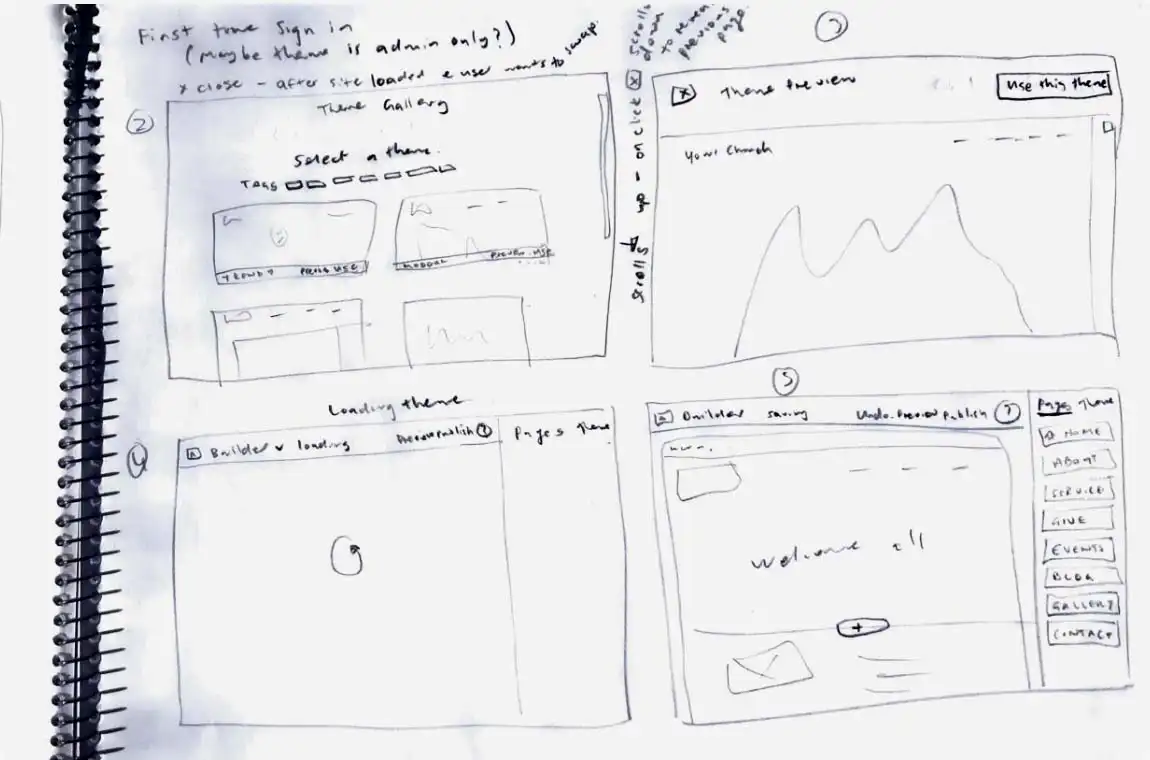 First time Sign in
(Maybe theme is admin only?)
x close - after site loaded & user wants to swap.
2
Theme Gallery
Select a theme.
TAGS
TRENDY
USE
MODERN
PREVIEW USE
Scrolls up - on click x
Scrolls down
to reveal
previous
page.
x Theme Preview
Use this theme
Your Church
Loading theme
4
Builder loading
Preview publish ?
Pages Theme
5
Builder saving
Undo. Preview publish ?
Pages Theme
HOME
ABOUT
SERVICE
GIVE
EVENTS
BLOG
GALLERY
CONTACT
Welcome all
+